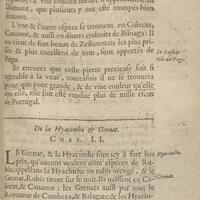 diamant, que plusieurs y ont esté trompés bien
souvent.
L'autre espece se trouvent en Calecut,
Cananor, & aussi en divers endroits de Bisnaga: Il
en vient de fort beaux de Zeilan: mais les plus purs
& plus excellens de tous, sont apportés de
Pegu.
Et encores que ceste pierre precieuse soit si
agreable à la veuë, toutesfois il ne se trouvera
point que pour grande, & de vive couleur qu'elle
aye esté, elle soit esté venduë plus de mille escus
de Portugal.
De la Hyacinthe & Grenat.
CHAP. LI.
LE Grenat, & la Hyacinthe sont icy à fort bas
prix, qu'aucuns veulent estre especes de Ru-
bis, appellans la Hyacinthe un rubis iterigé, & le
Grenat, Rubis tirant sur le noir. Ils naissent en Cale-
cut, & Cananor: les Grenats aussi par tout le
Royaume de Cambaya, & Balagate: les Hyacin-
Hyacinthe.
Grenat.